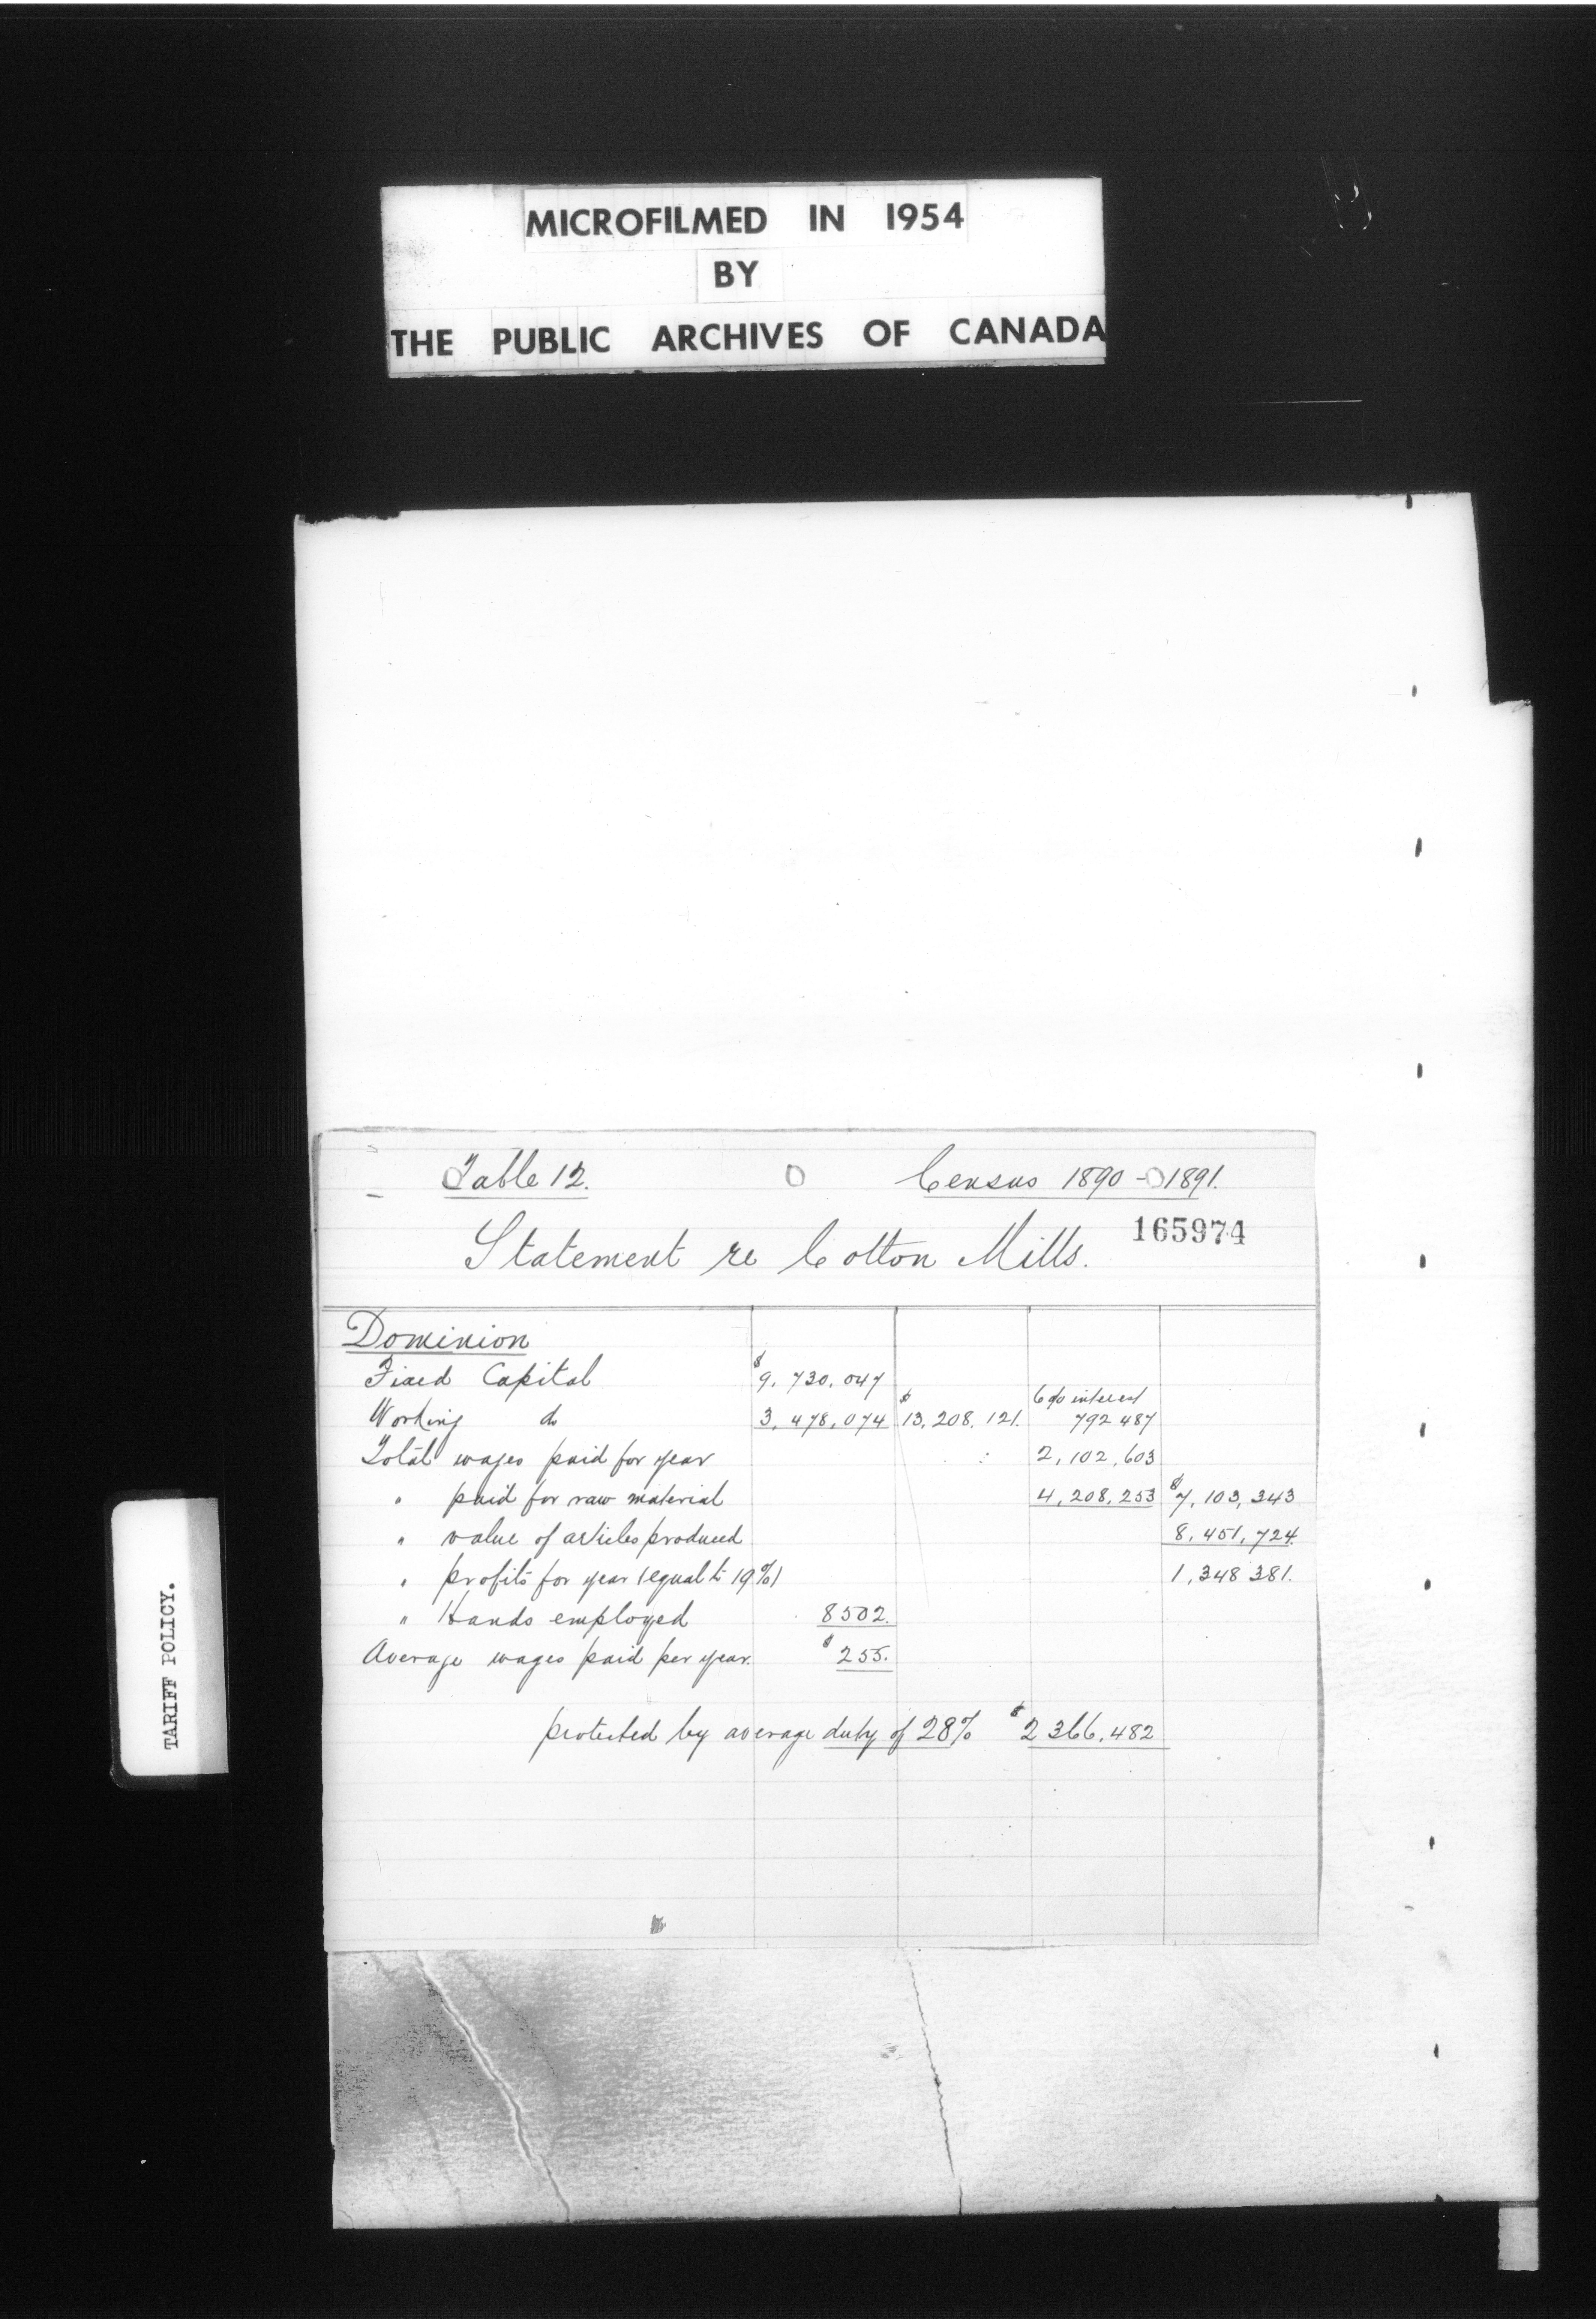 MICROFILMED IN 1954
BY
THE PUBLIC ARCHIVES OF CANADA
Table 12. Census 1890-1891.
165974
Statement re Cotton Mills.
Dominion
Fixed Capital $9,730,047
Working do 3,478,074 $13,208,121. 6% interest 792487
Total wages paid for year 2,102,603
" paid for raw material 4,208,253 $7,103,343
" value of articles produced 8,451,724.
" profits for year (equal to 19%) 1,348381.
" Hands employed 8502.
Average wages paid per year. $255.
protected by average duty of 28% $2366,482
TARIFF POLICY.